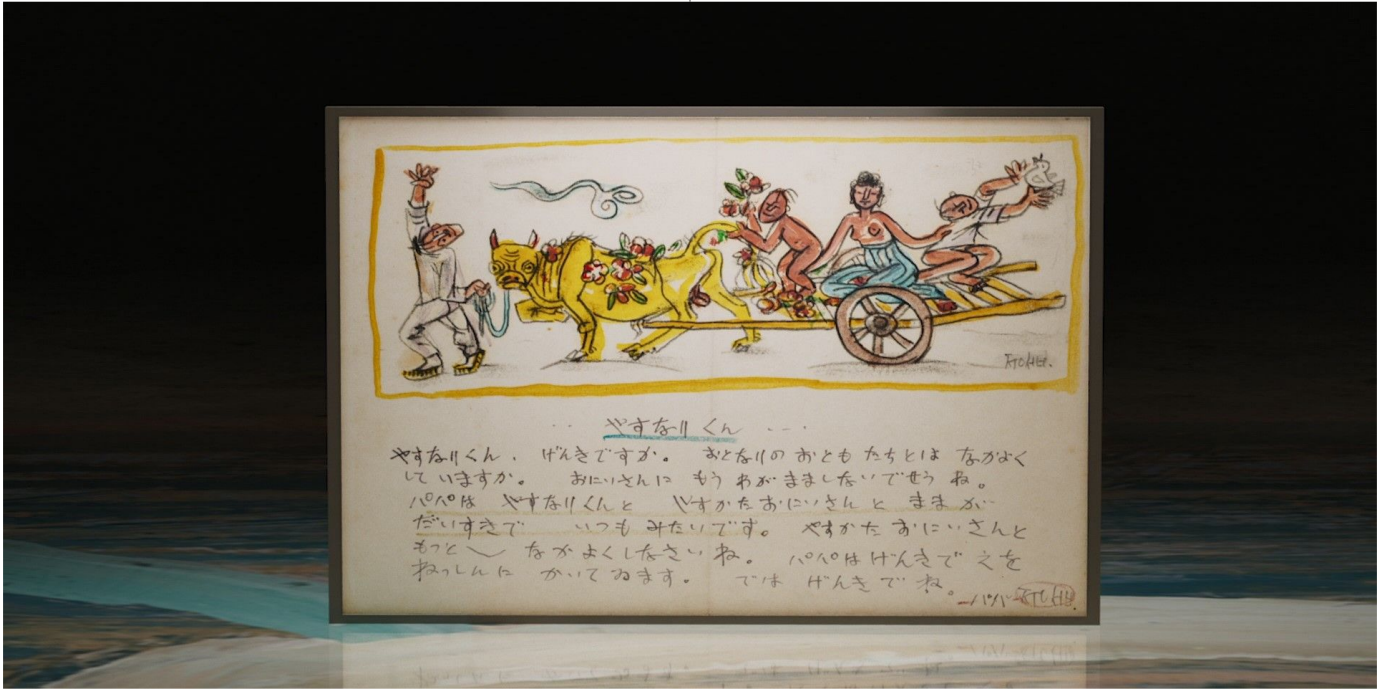 やすなりくん
やすなりくん. げんきですか。 おとなりの おともたちとは なかよく
して いますか。 おにいさんに もう わがまましないでせう ね。
パパは やすなりくんと やすかたおにいさんと ままが
だいすきで いつも みたいです。 やすかた おにいさんと
もっと〳〵 なかよくしなさい ね。 パパはげんきで えを
ねっしんに かいて ゐます。 では げんきで ね。
ーパパー